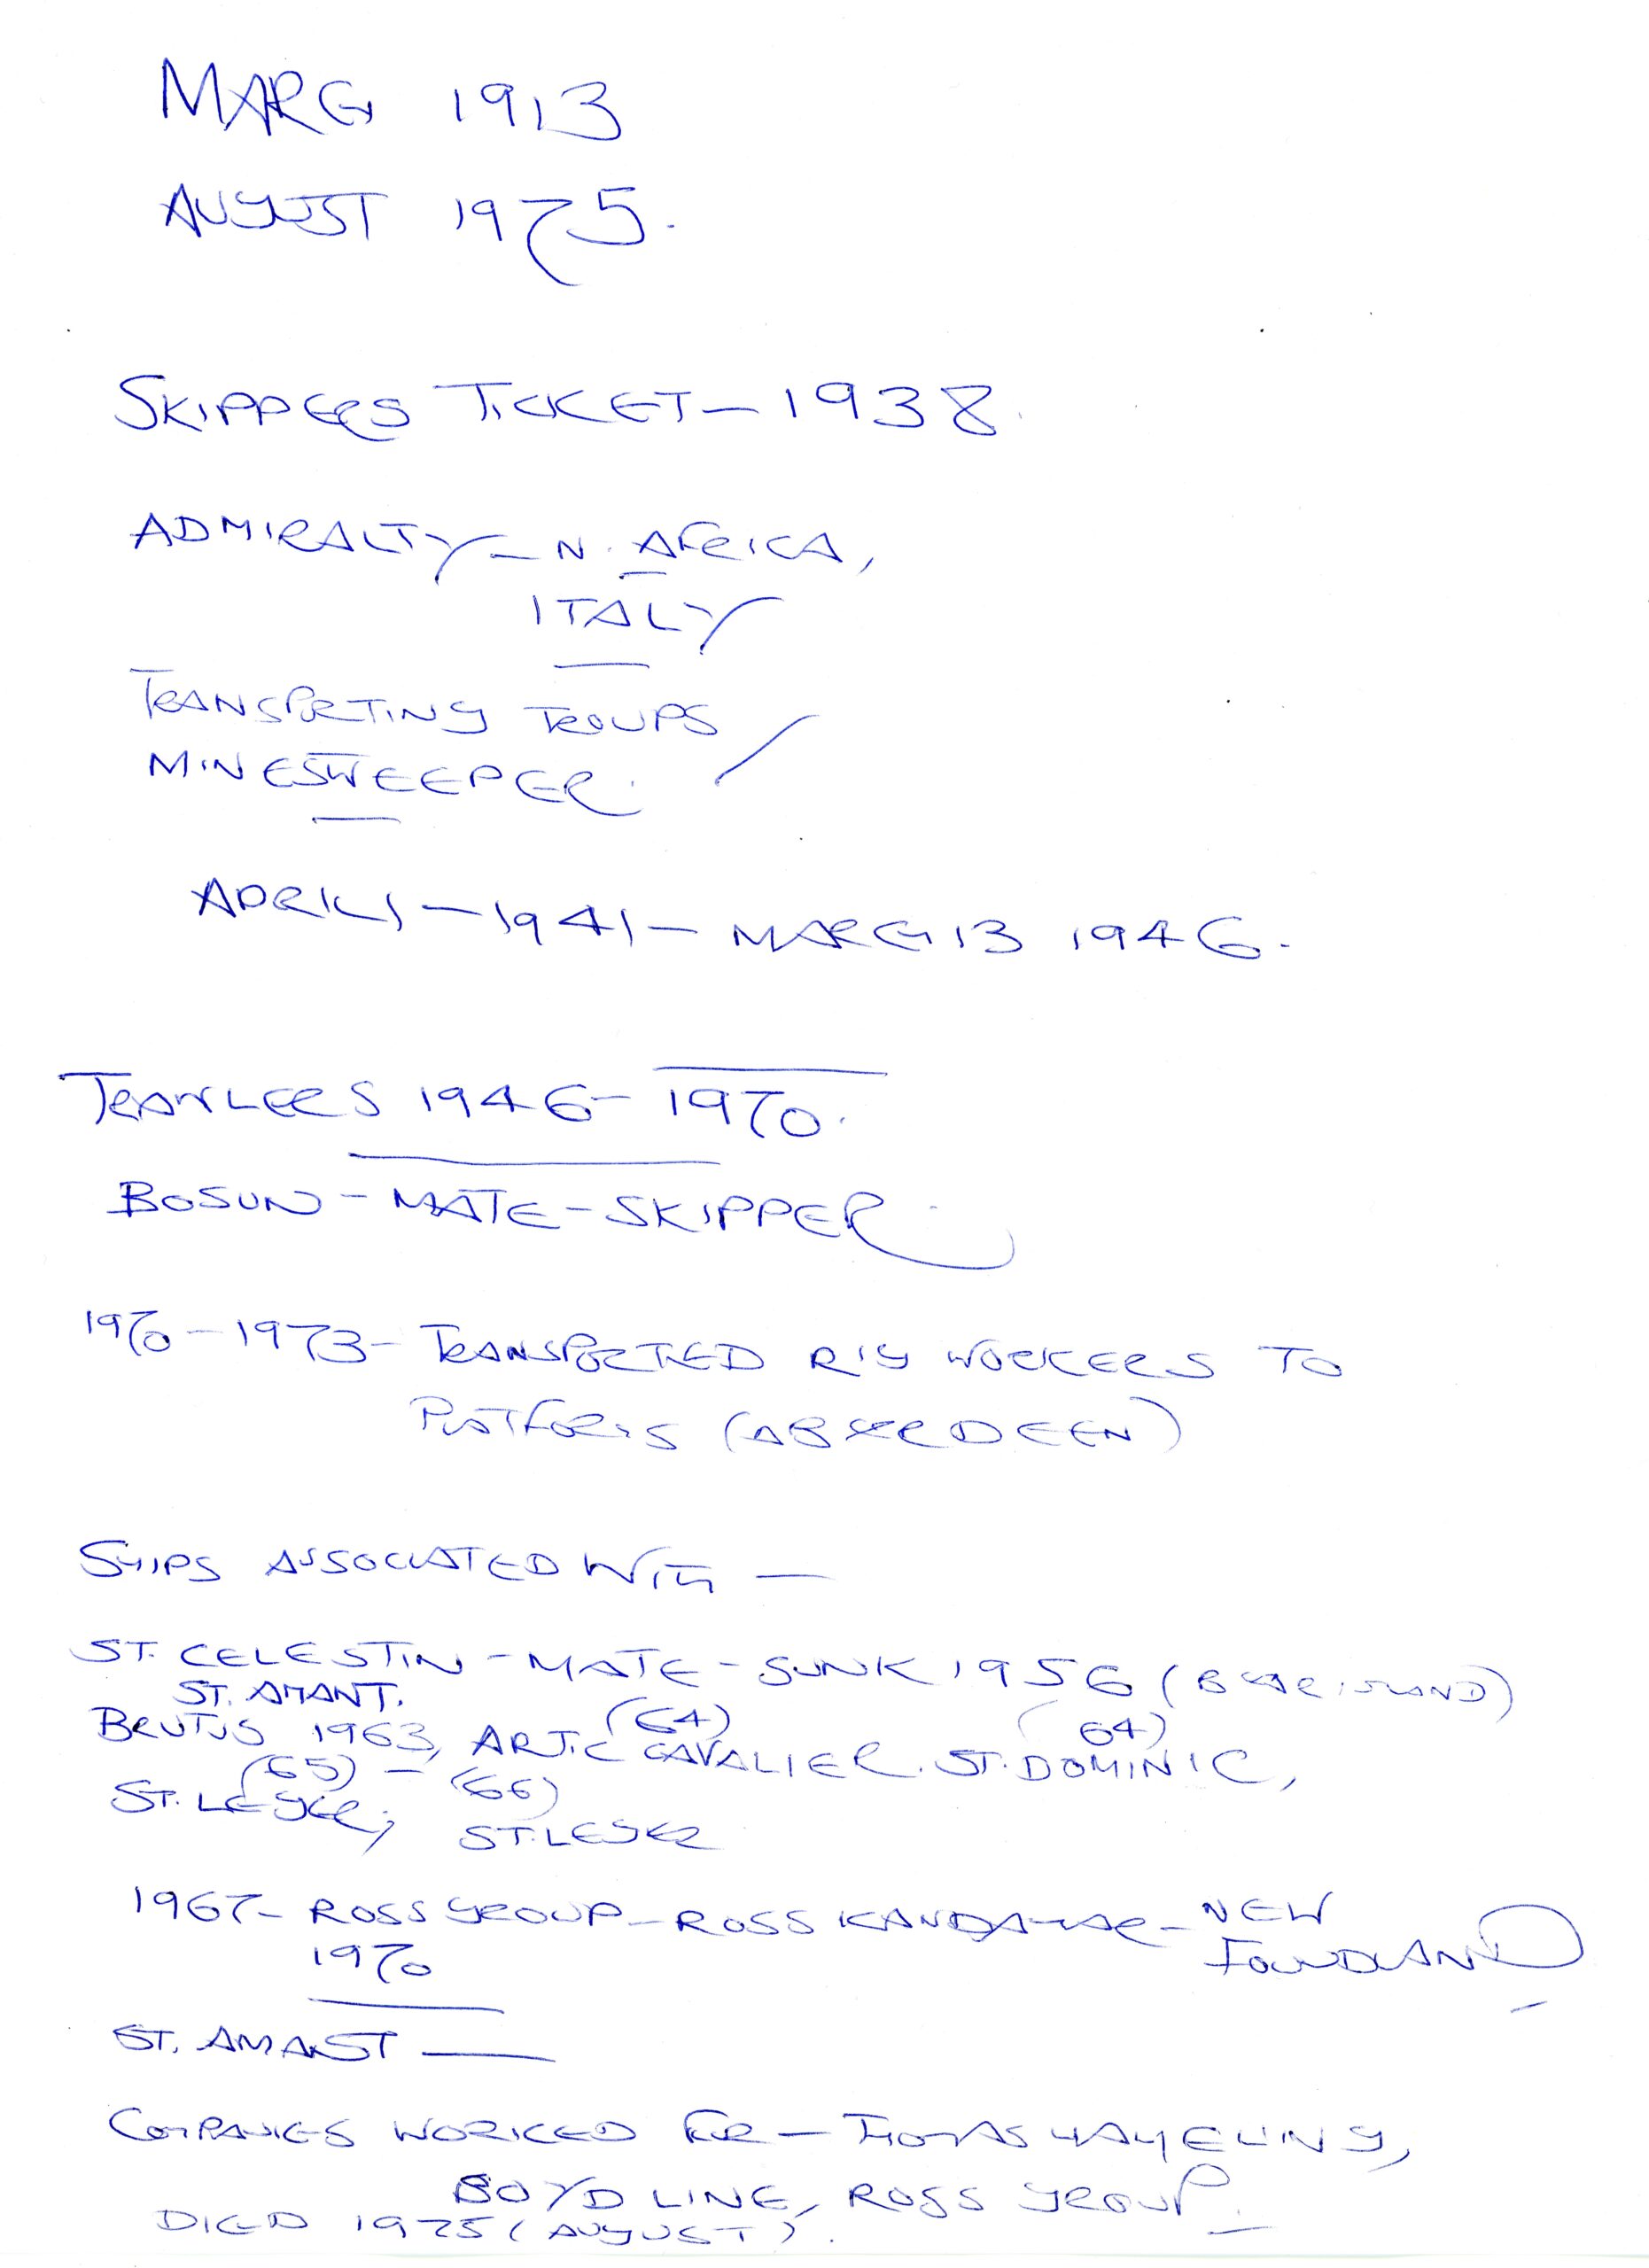 MARCH 1913
AUGUST 1975.
SKIPPERS TICKET - 1938.
ADMIRALTY - N. AFRICA,
ITALY
TRANSPORTING TROUPS /
MINESWEEPER.
APRIL 1 - 1941 - MARCH 13 1946.
TRAWLERS 1946 - 1970.
BOSUN - MATE - SKIPPER.
1970 - 1973 - TRANSPORTED RIG WORKERS TO
PLATFORMS (ABERDEEN)
SHIPS ASSOCIATED WITH -
ST. CELESTIN - MATE - SUNK 1956 (BEAR ISLAND)
ST. AMANT.
(64) (64)
BRUTUS 1963, ARTIC CAVALIER. ST. DOMINIC,
(65) - (66)
ST. LEGER, ST. LEGER
1967 - ROSS GROUP - ROSS KANDAHAR - NEW
1970 FOUNDLAND
ST. AMANT -
COMPANIES WORKED FOR - THOMAS HAMELING,
BOYD LINE, ROSS GROUP.
DIED 1975 (AUGUST).